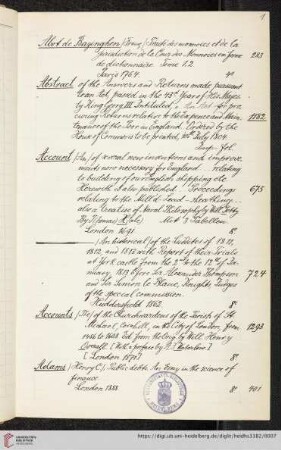 1
Abot de Bazinghen / Traité des monnoies et de la
jurisdiction de la Cour des Monnoies en forme
de dictionnaire Tome 1.2.
Paris 1764 4°
Abstract of the Answers and Returns made pursuant
to an Act, passed in the 43d Year of His Majesty
King George III. Intituled: for pro-
curing Returns relative to the Expence and Main-
tenance of the Poor in England. Ordered by the
House of Commons to be printed, 10th July 1804
1132
Account (An) of several new inventions and improve-
ments now necessary for England relating
to building of our English shipping etc
Herewith is also published Proceedings
relating to the Mill'd Lead-sheathing
also a Treatise of Naval Philosophy by Will. Petty.
By Thomas
675
London 1691 8°
(An historical) of the Luddites of 1811,
1812, and 1813 with Report of their Trials
at York Castle from the 2nd to the 12th of Ja-
nuary 1813 before Sir Alexander Thompson
and Sir Simon Le Blanc, Knights Judges
of the special commission.
724
Huddersfield 1862 8°
Accounts (The) of the Churchwardens of the Parish of St.
Michael, Cornhill, in the City of London, from
1456 to 1608. Edit by Will. Henry
Overall.
1293
[London 1871] 8°
Adams (Henry C.) Public debts. An Essay in the science of
finance
London 1888 8°
http://digi.ub.uni-heidelberg.de/diglit/heidhs3382/0007